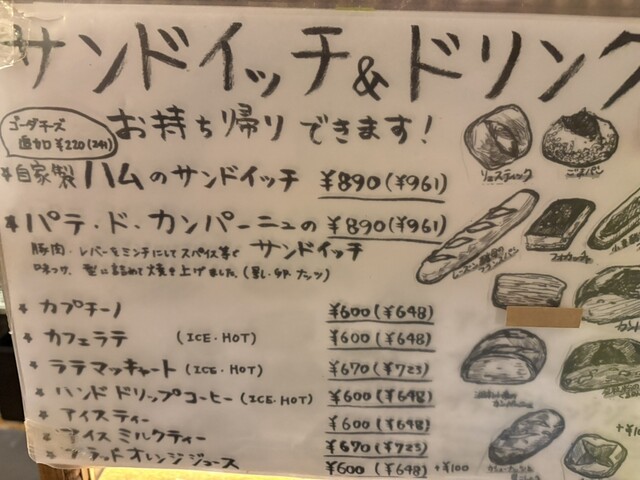 サンドイッチ&ドリンク
お持ち帰りできます!
ゴーダチーズ
追加 ¥220(241)
*自家製ハムのサンドイッチ ¥890(¥961)
*パテ・ド・カンパーニュの ¥890(¥961)
サンドイッチ
豚肉・レバーをミンチにしてスパイス等で
味つけ、型に詰めて焼き上げました。
*カプチーノ ¥600(¥648)
*カフェラテ (ICE・HOT) ¥600(¥648)
*ラテマッキャート(ICE・HOT) ¥670(¥723)
*ハンドドリップコーヒー(ICE・HOT) ¥600(¥648)
*アイスティー ¥600(¥648)
*アイスミルクティー ¥670(¥723)
ブラッドオレンジジュース ¥600(¥648) +¥100
リュスティック
ごまパン
フォカッチャ